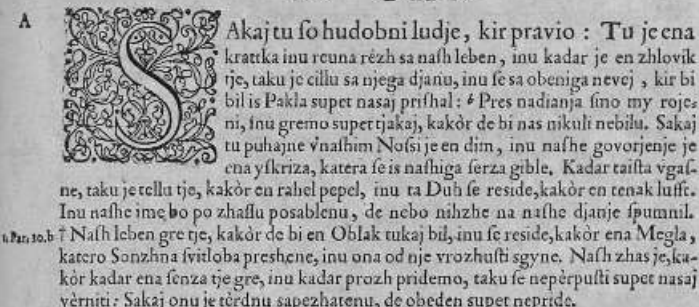 A
SAkaj tu ſo hudobni ludje, kir pravio : Tu je ena
krattka inu reuna rézh sa naſh leben, inu kadar je en zhlovik
tje, taku je cillu sa njega djanu, inu ſe sa obeniga nevej, kir bi
bil is Pakla supet nasaj priſhal : b Pres nadianja ſmo my roje-
ni, inu gremo supet tjakaj, kakòr de bi nas nikuli nebilu. Sakaj
tu puhajne v'naſhim Noſsi je en dim, inu naſhe govorjenje je
ena yſkriza, katera ſe is naſhiga ſerza gible. Kadar taiſta vgaſ-
ne, taku je tellu tje, kakòr en rahel pepel, inu ta Duh ſe reside, kakòr en tenak lufft.
Inu naſhe ime bo po zhaſſu posablenu, de nebo nihzhe na naſhe djanje ſpumnil.
1. Par. 30. b † Naſh leben gre tje, kakòr de bi en Oblak tukaj bil, inu ſe reside, kakòr ena Megla,
katero Sonzhna ſvitloba preshene, inu ona od nje vrozhuſti sgyne. Naſh zhas je, ka-
kòr kadar ena ſenza tje gre, inu kadar prozh pridemo, taku ſe nepèrpuſti supet nasaj
vèrniti : Sakaj onu je tèrdnu sapezhatenu, de obeden supet nepride.